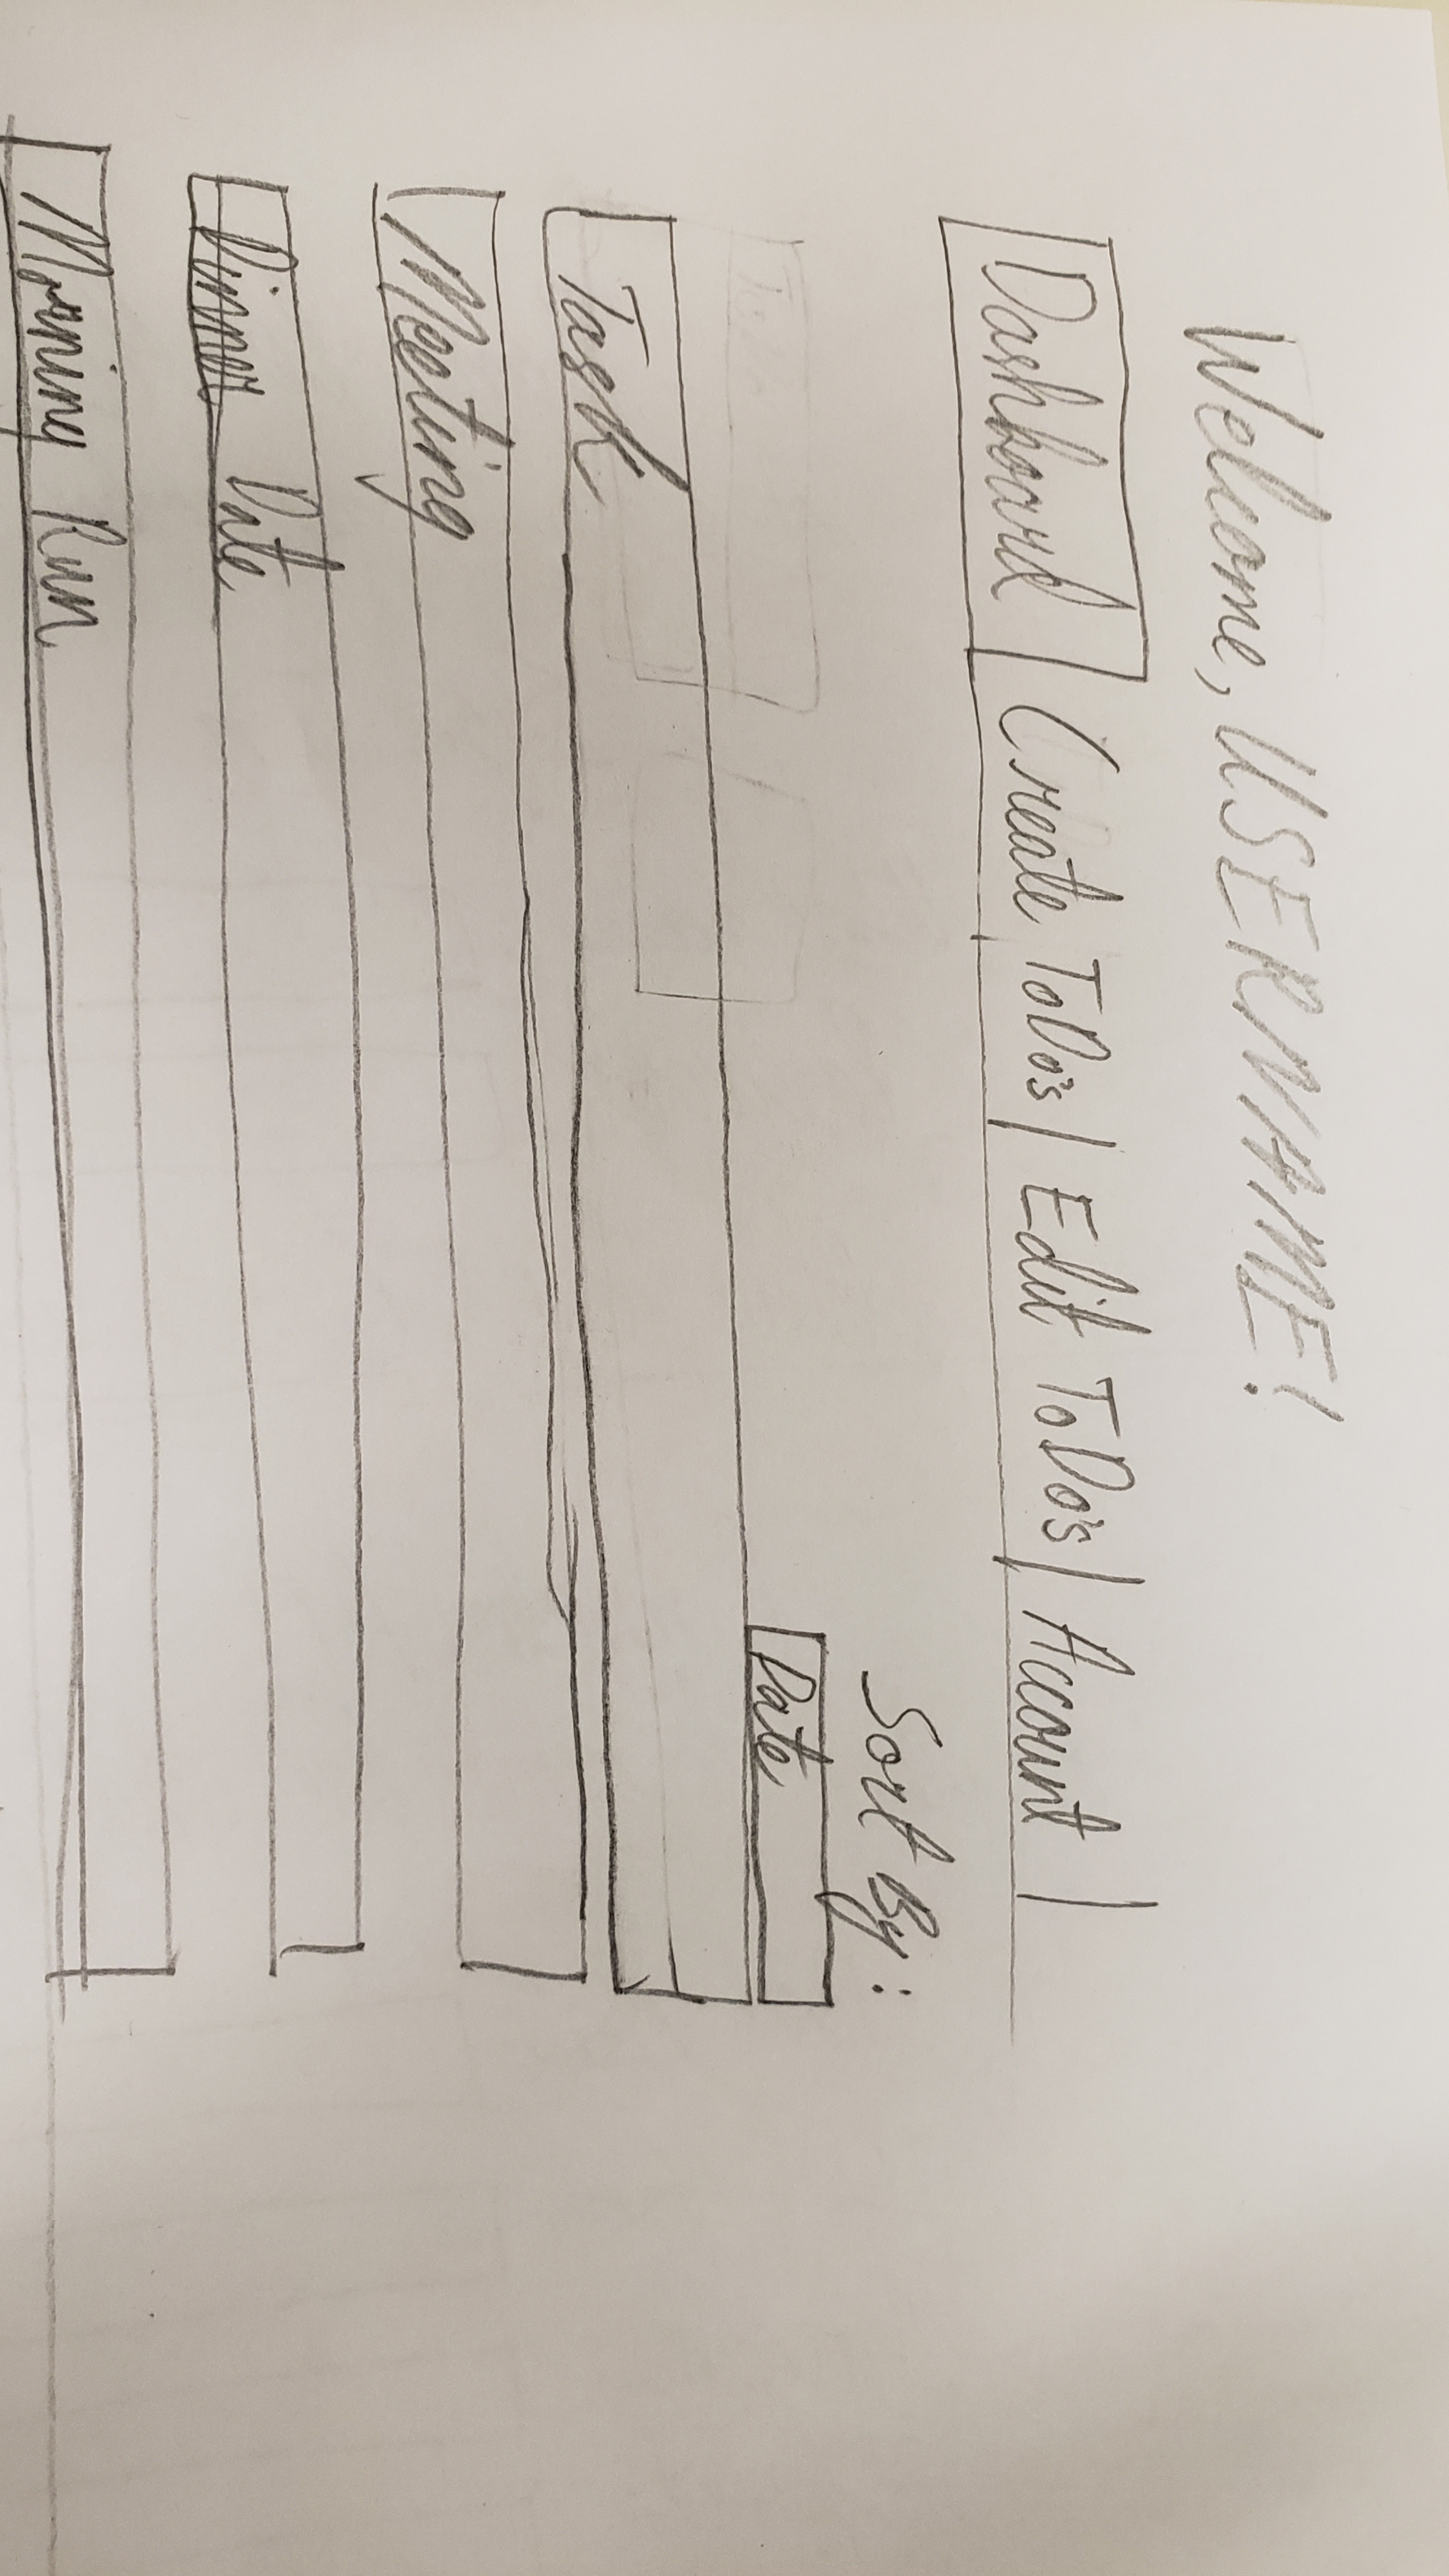 Welcome, USERNAME!
Dashboard | Create ToDo's | Edit ToDo's | Account |
Sort By:
Date
Task
Meeting
Dinner Date
Morning Run